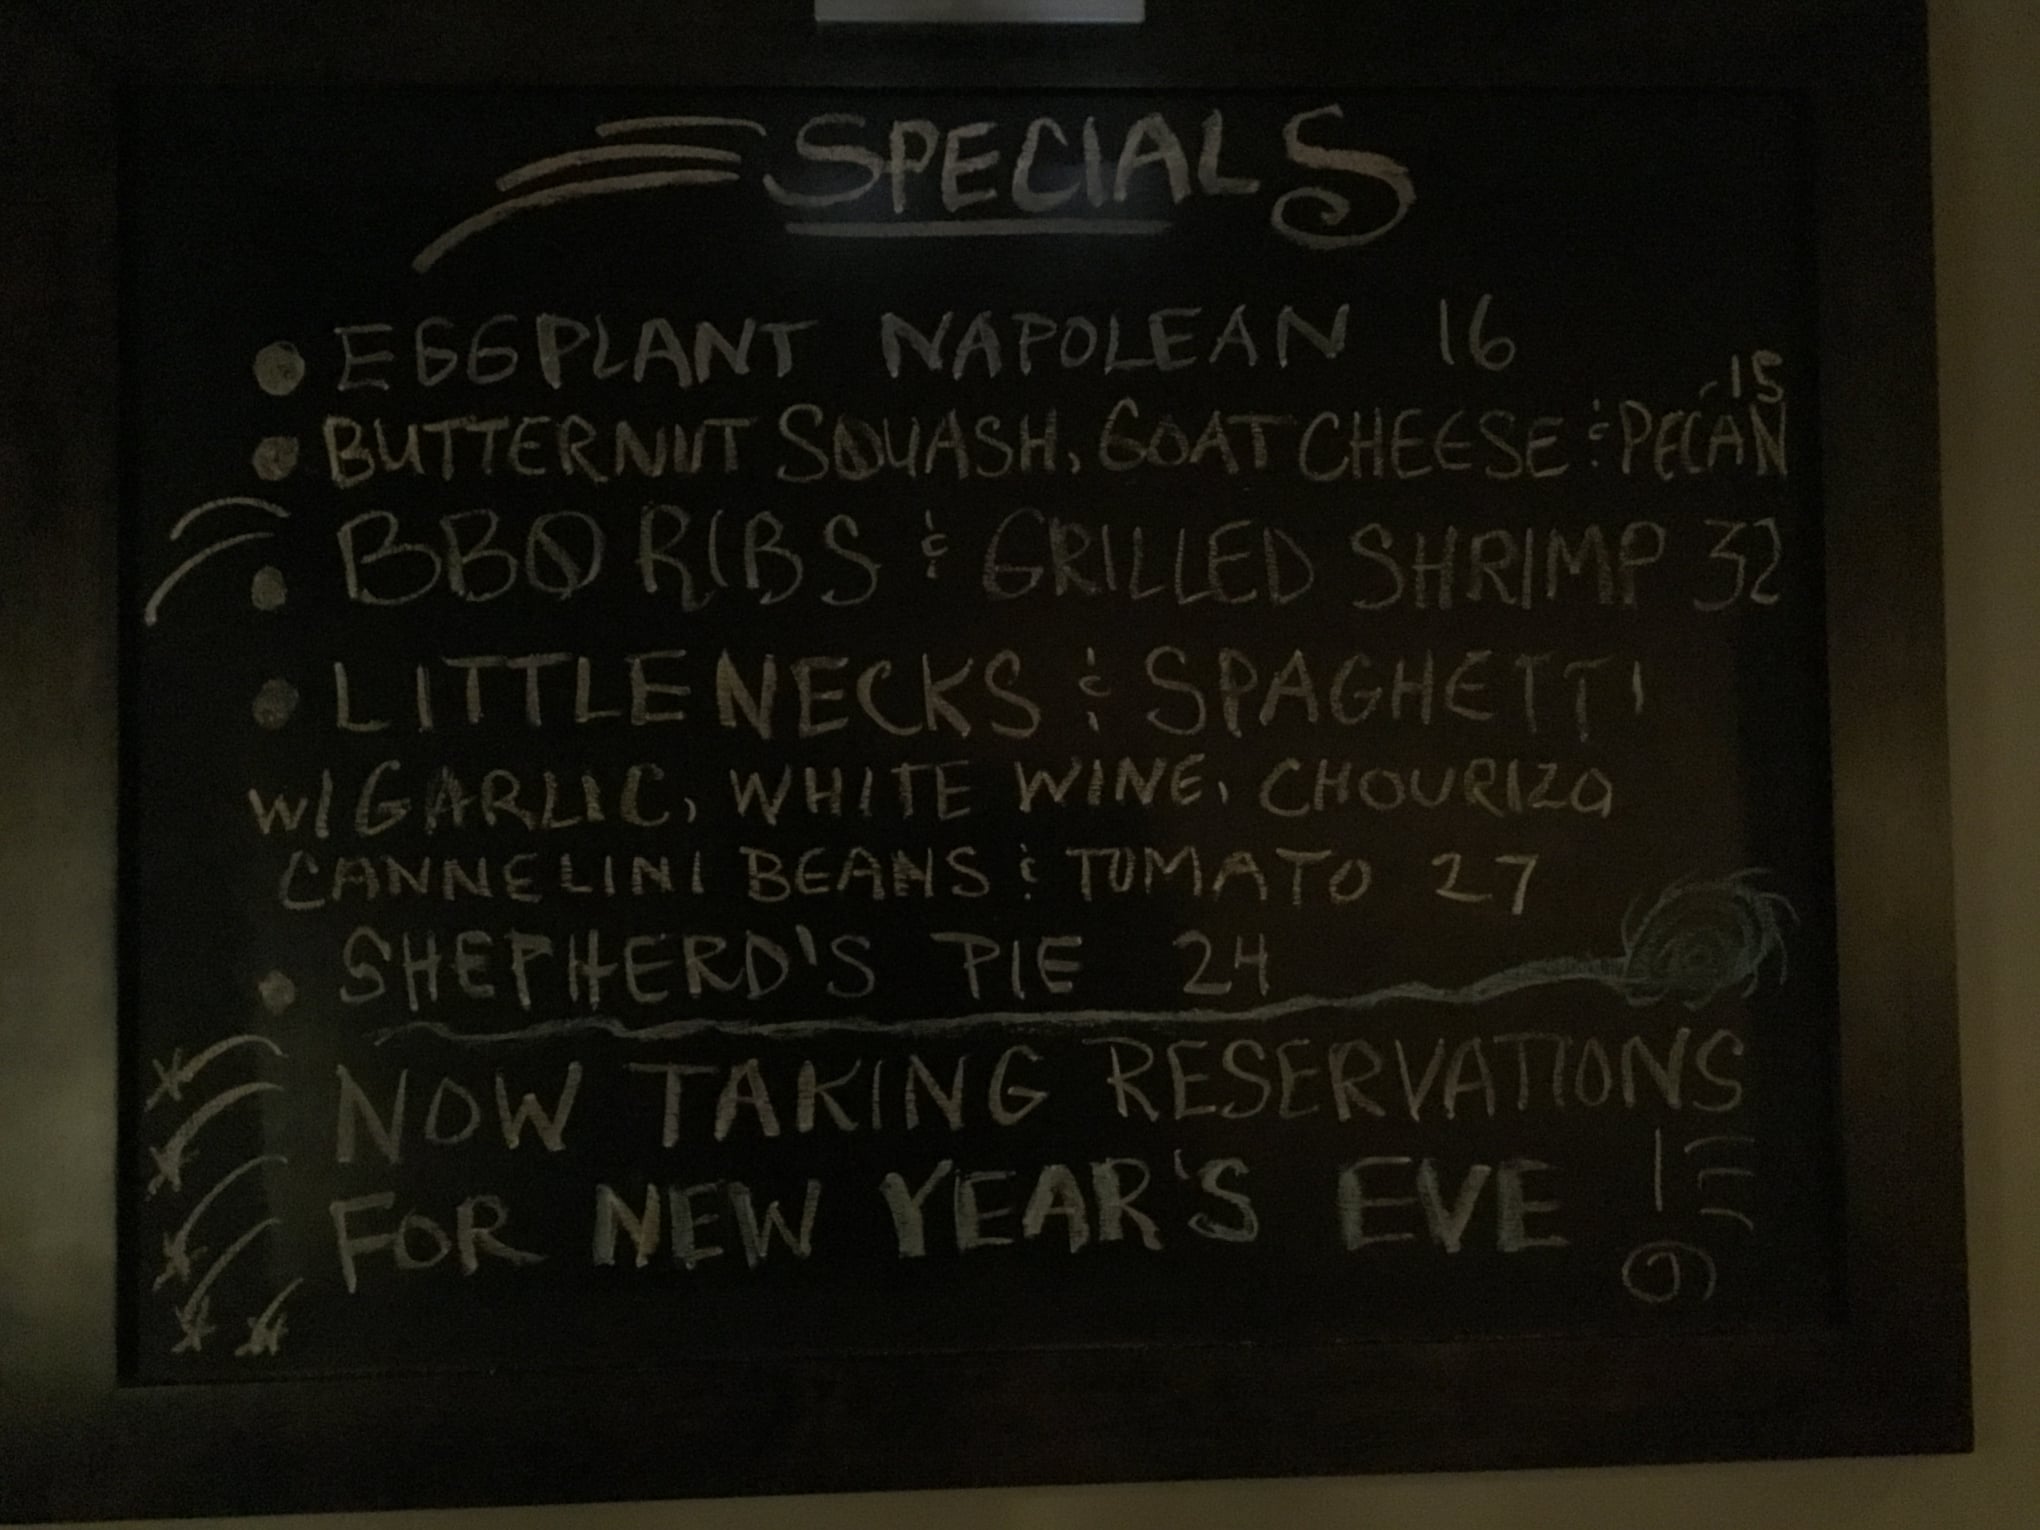 SPECIALS
• EGGPLANT NAPOLEAN 16
• BUTTERNUT SQUASH, GOAT CHEESE & PECAN .15
• BBQ RIBS & GRILLED SHRIMP 32
• LITTLENECKS & SPAGHETTI
W/ GARLIC, WHITE WINE, CHOURIZO
CANNELINI BEANS & TOMATO 27
• SHEPHERD'S PIE 24
NOW TAKING RESERVATIONS
FOR NEW YEAR'S EVE !